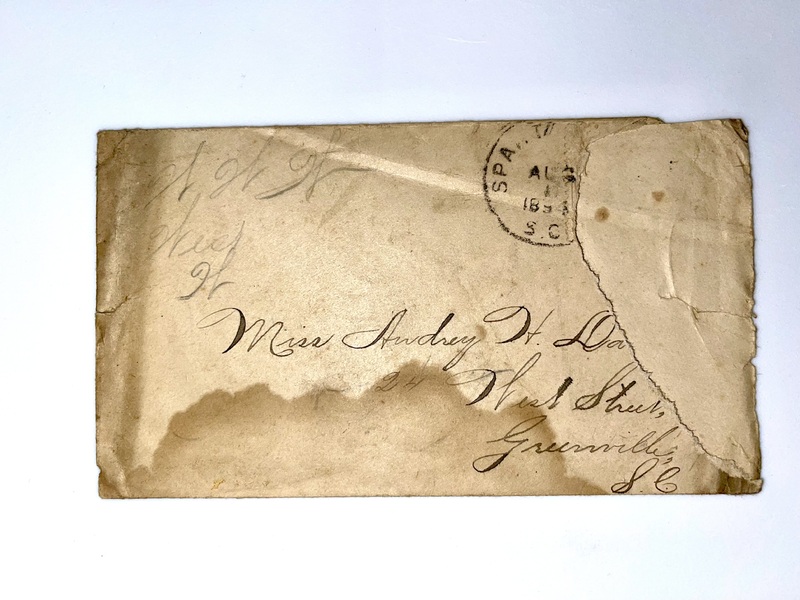 SPARTA
AUG
1
189
S.C.
W, W W
West
W
Miss Audrey H. Da
24 West Street,
Greenville,
S.C